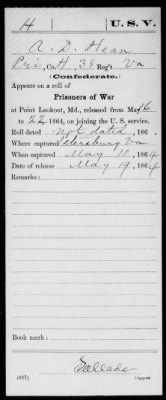 H U.S.V.
A. D. Hean
Pri, Co. H, 38 Reg't Va
(Confederate.)
Appears on a roll of
Prisoners of War
at Point Lookout, Md., released from May 16
to 22 1864, on joining the U. S. service.
Roll dated Not dated, 186
Where captured Petersburg Va
When captured May 11, 1864
Date of release May 19, 1864
Remarks:
Book mark: